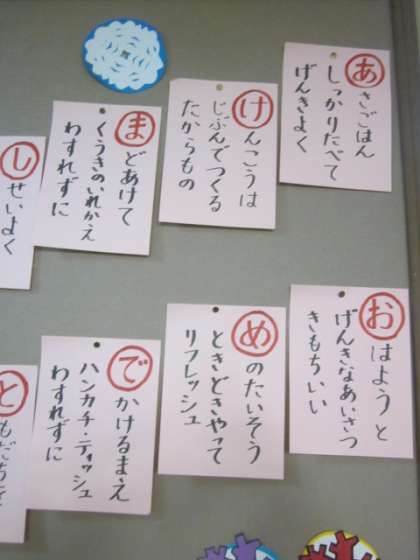 あさごはん
しっかりたべて
げんきよく
けんこうは
じぶんでつくる
たからもの
まどあけて
くうきのいれかえ
わすれずに
し
せいよく
おはようと
げんきなあいさつ
きもちいい
めのたいそう
ときどきやって
リフレッシュ
でかけるまえ
ハンカチ・ティッシュ
わすれずに
ともだちを